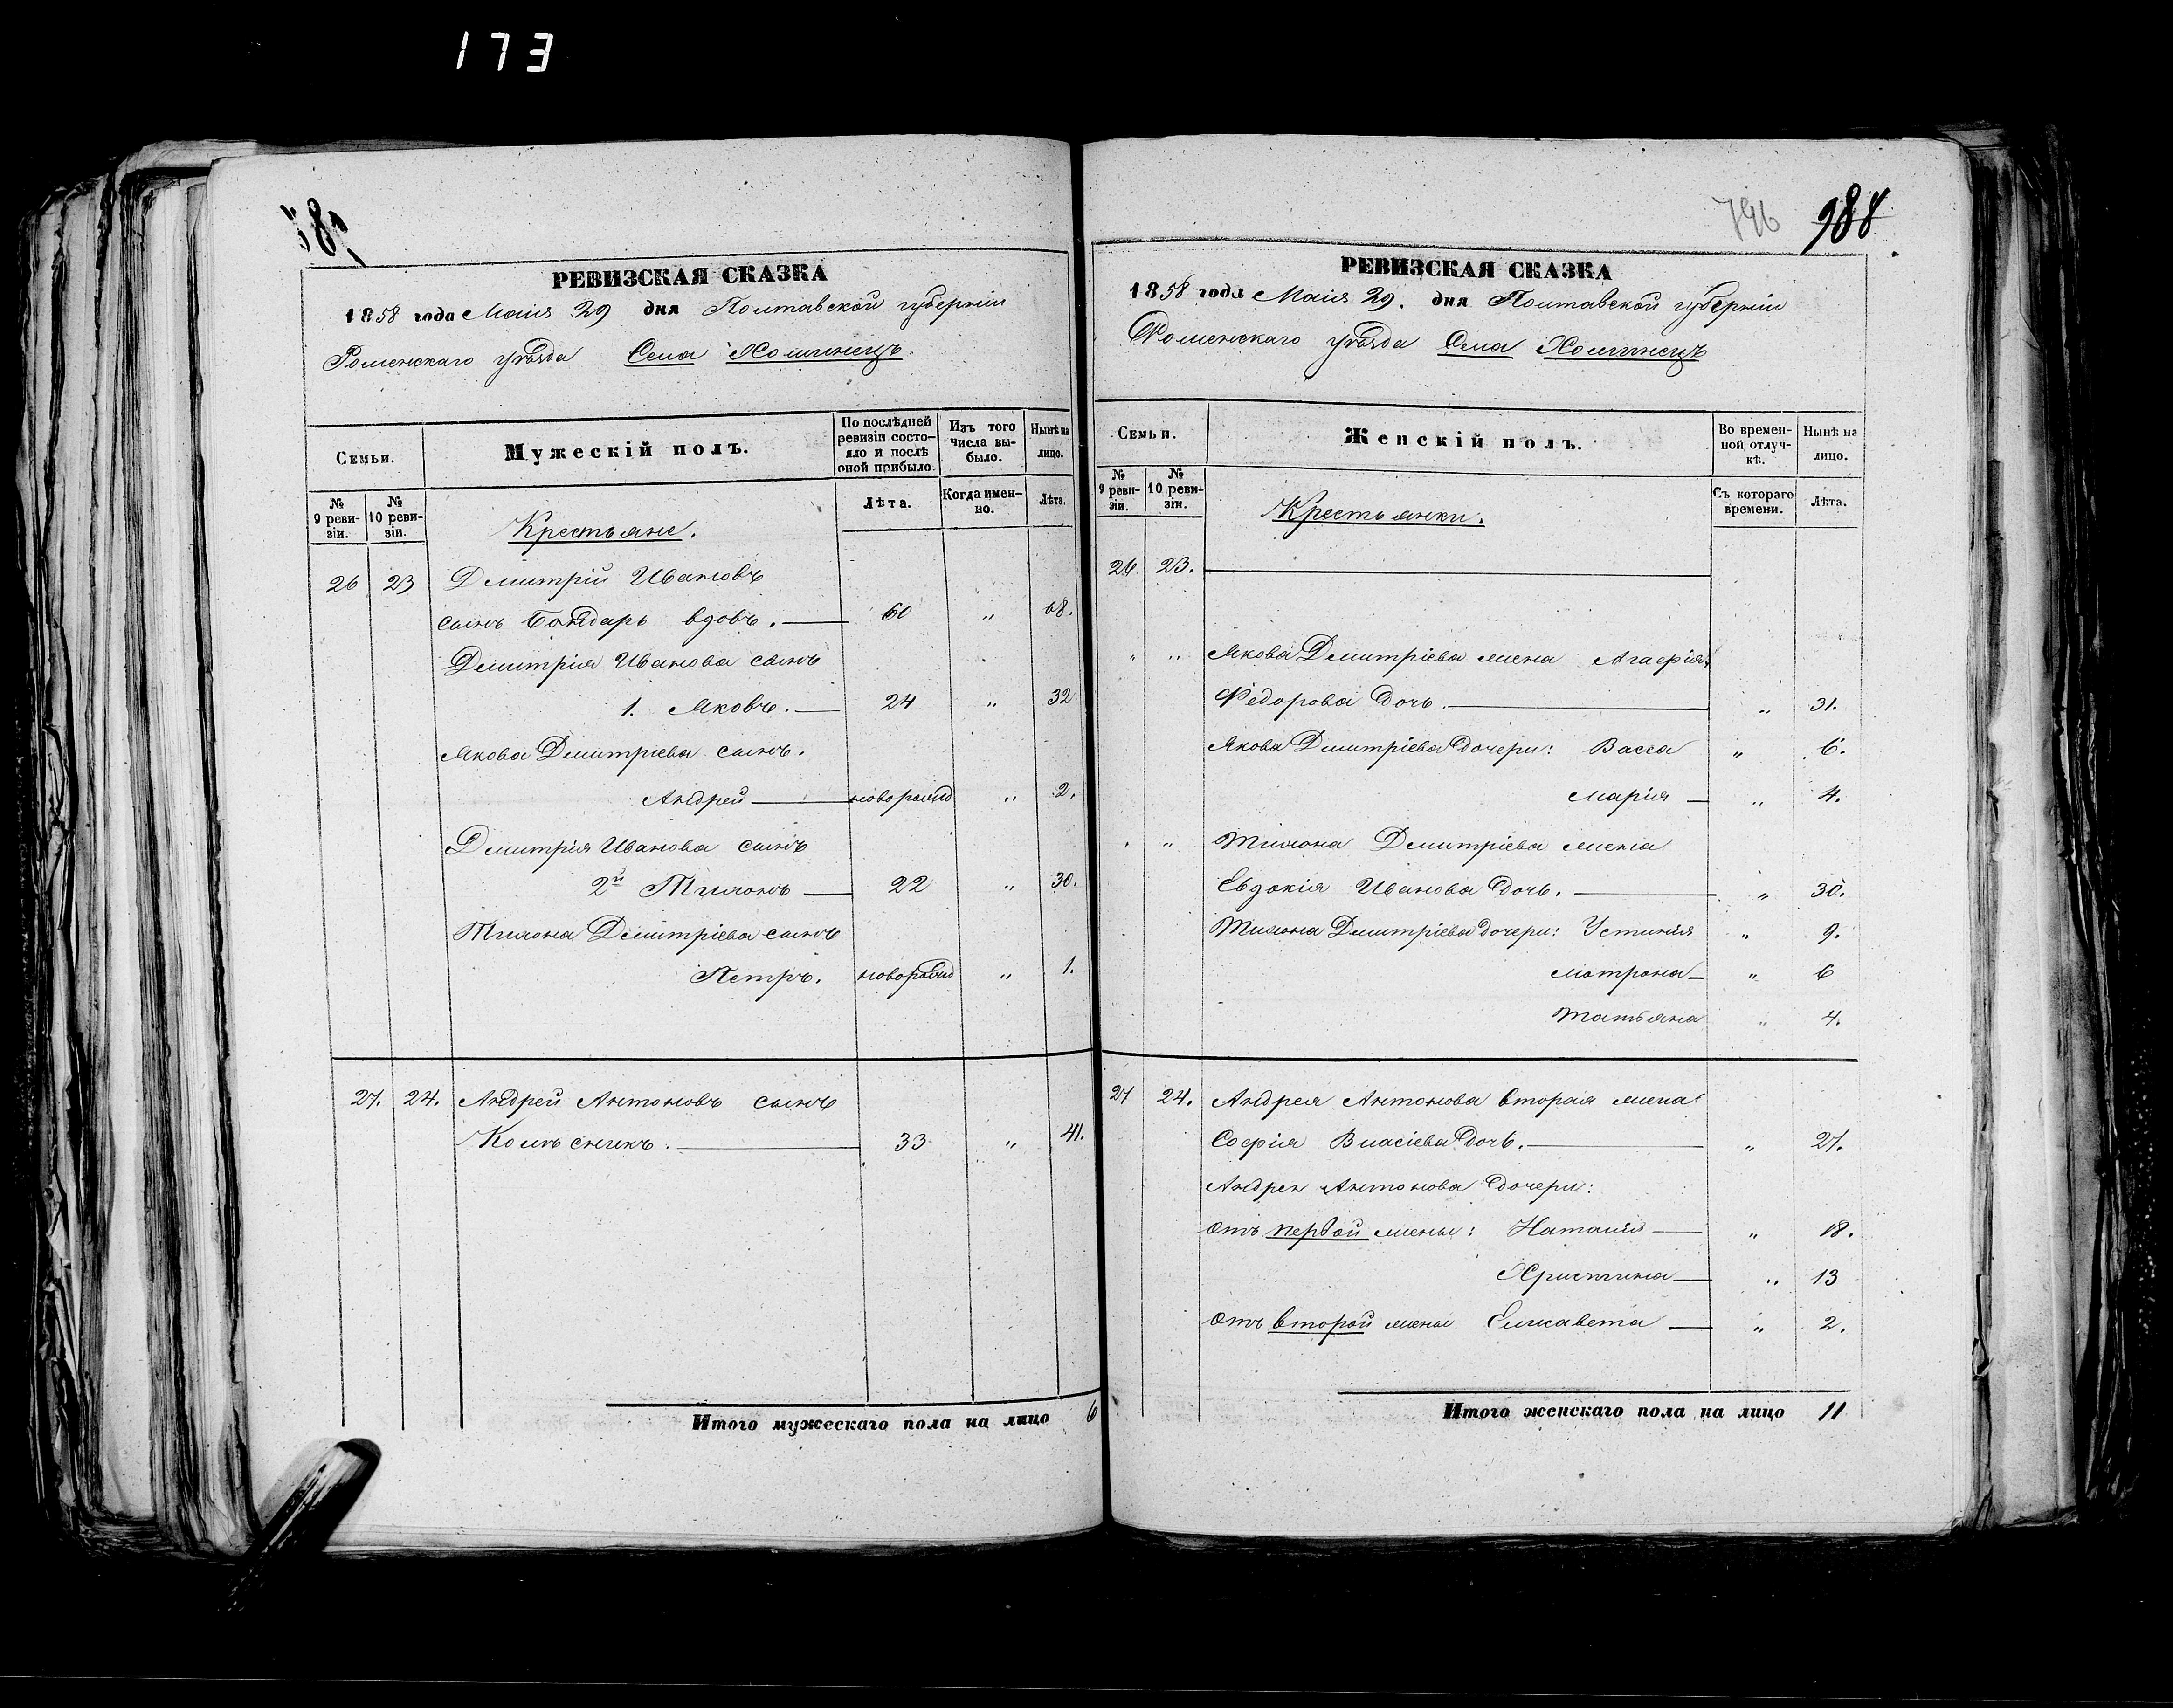 173
РЕВИЗСКАЯ СКАЗКА
1858 года Маія 29 дня Полтавской губерніи
Роменскаго уѣзда Села Хоминецъ.
Семьи.
Мужескій полъ.
По послѣдней ревизіи состо-яло и послѣ оной прибыло.
Изъ того числа вы-было.
Нынѣ на лицо.
№ 9 реви-зіи.
№ 10 реви-зіи.
Крестьяне.
Лѣта.
Когда имен-но.
Лѣта.
26 23 Дмитрій Ивановъ
сынъ Бондарь вдовъ. — 60 „ 68.
Дмитрія Иванова сынъ
1. Яковъ. — 24 „ 32
Якова Дмитріева сынъ.
Андрей — новорожд „ 2.
Дмитрія Иванова сынъ
2й Тихонъ — 22 „ 30.
Тихона Дмитріева сынъ
Петръ. новорожд „ 1.
27. 24. Андрей Антоновъ сынъ
33 „ 41.
Итого мужескаго пола на лицо 6
796 988
РЕВИЗСКАЯ СКАЗКА
1858 года Маія 29. дня Полтавской губерніи
Роменскаго уѣзда Села Хоминецъ
Семьи.
Женскій полъ.
Во времен-ной отлуч-кѣ.
Нынѣ на лицо.
№ 9 реви-зіи.
№ 10 реви-зіи.
Крестьянки.
Съ котораго времени.
Лѣта.
26 23. —
„ „ Якова Дмитріева жена Агафія
Федорова дочь. — „ 31.
Якова Дмитріева дочери: Васса „ 6.
Марія — „ 4.
„ „ Тихона Дмитріева жена
Евдокія Иванова дочь. — „ 30.
Тихона Дмитріева дочери: Устинія „ 9.
Матрона — „ 6
Татьяна „ 4.
27 24. Андрея Антонова вторая жена
Софія Власіева дочь. — „ 27.
Андрея Антонова дочери:
отъ первой жены: Наталія — „ 18.
Христина — „ 13
отъ второй жены Елисавета — „ 2.
Итого женскаго пола на лицо 11